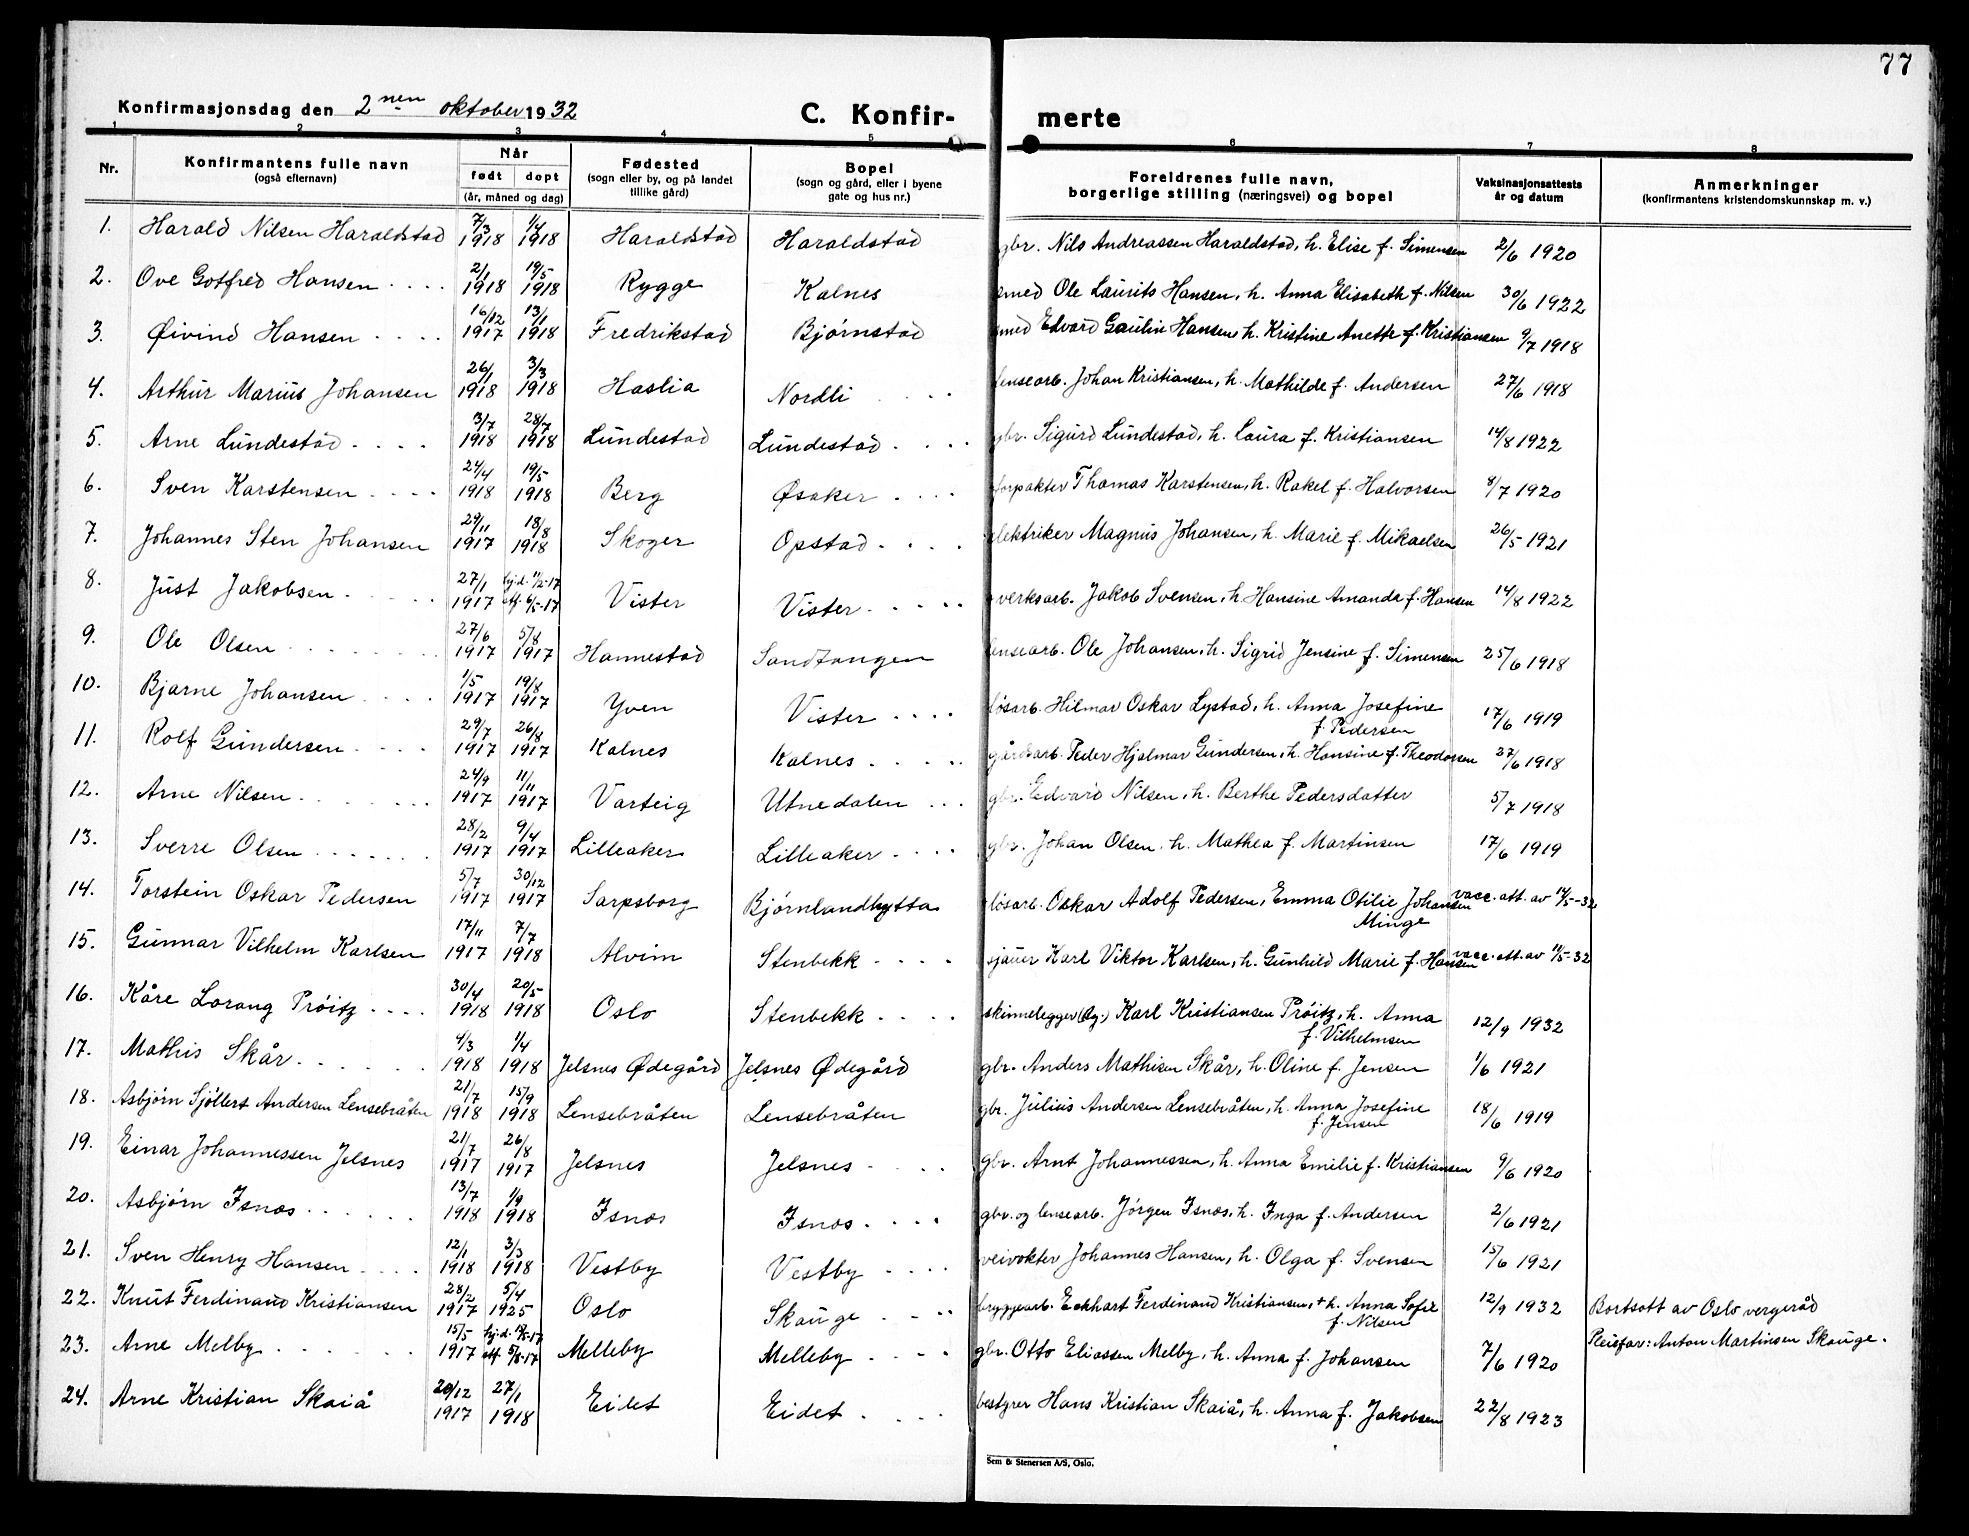 77
Konfirmasjonsdag den 2nen oktober 1932
C. Konfir- merte
1 2 3 4 5 6 7 8
Nr. Konfirmantens fulle navn (også efternavn) Når født døpt (år, måned og dag) Fødested (sogn eller by, og på landet tillike gård) Bopel (sogn og gård, eller i byene gate og hus nr.) Foreldrenes fulle navn, borgerlige stilling (næringsvei) og bopel Vaksinasjonsattests år og datum Anmerkninger (konfirmantens kristendomskunnskap m. v.)
1. Harald Nilsen Haraldstad 7/3 1918 1/4 1918 Haraldstad Haraldstad gbr. Nils Andreassen Haraldstad, h. Elise f. Simensen 2/6 1920
2. Ove Gotfred Hansen 2/1 1918 19/5 1918 Rygge Kalnes smed Ole Laurits Hansen, h. Anna Elisabeth f. Nilsen 30/6 1922
3. Øivind Hansen 16/12 1917 13/1 1918 Fredrikstad Bjørnstad smed Edvard Gaulin Hansen, h. Kristine Anette f. Kristiansen 9/7 1918
4. Arthur Marius Johansen 26/1 1918 3/3 1918 Haslia Nordli lensearb. Johan Kristiansen, h. Mathilde f. Andersen 27/6 1918
5. Arne Lundestad 13/7 1918 28/7 1918 Lundestad Lundestad gbr. Sigurd Lundestad, h. Laura f. Kristiansen 14/8 1922
6. Sven Karstensen 24/4 1918 19/5 1918 Berg Øsaker forpakter Thomas Karstensen, h. Rakel f. Halvorsen 8/7 1920
7. Johannes Sten Johansen 29/11 1917 18/8 1918 Skoger Opstad elektriker Magnus Johansen, h. Marie f. Mikaelsen 26/5 1921
8. Just Jakobsen 27/1 1917 hj.d. 11/2-17 stf. 6/5-17 Vister Vister verksarb. Jakob Svensen, h. Hansine Amanda f. Hansen 14/8 1922
9. Ole Olsen 27/6 1917 5/8 1917 Hannestad Sandtangen lensearb. Ole Johansen, h. Sigrid Jensine f. Simensen 25/6 1918
10. Bjarne Johansen 1/5 1917 19/8 1917 Yven Vister løsarb. Hilmar Oskar Lystad, h. Anna Josefine f. Pedersen 17/6 1919
11. Rolf Gundersen 29/7 1917 26/8 1917 Kalnes Kalnes gårdsarb. Peder Hjalmar Gundersen, h. Hansine f. Theodorsen 27/6 1918
12. Arne Nilsen 24/9 1917 11/11 1917 Varteig Utnedalen gbr. Edvard Nilsen, h. Berthe Pedersdatter 5/7 1918
13. Sverre Olsen 28/2 1917 9/4 1917 Lilleaker Lilleaker gbr. Johan Olsen, h. Mathea f. Martinsen 17/6 1919
14. Torstein Oskar Pedersen 5/7 1917 30/12 1917 Sarpsborg Bjørnlandhytta løsarb. Oskar Adolf Pedersen, Emma Otilie Johansen Minge vacc. att. av 14/5-32
15. Gunnar Vilhelm Karlsen 17/11 1917 7/7 1918 Alvim Stenbekk sjauer Karl Viktor Karlsen, h. Gunhild Marie f. Hansen vacc. att. av 11/5-32
16. Kåre Lorang Prøitz 30/4 1918 20/5 1918 Oslo Stenbekk skinnelegger Karl Kristiansen Prøitz, h. Anna f. Vilhelmsen 12/9 1932
17. Mathis Skår 6/3 1918 1/4 1918 Jelsnes Ødegård Jelsnes Ødegård gbr. Anders Mathisen Skår, h. Oline f. Jensen 1/6 1921
18. Asbjørn Sjøllert Andersen Lensebråten 21/7 1918 15/9 1918 Lensebråten Lensebråten gbr. Julius Andersen Lensebråten, h. Anna Josefine f. Jensen 18/6 1919
19. Einar Johannessen Jelsnes 21/7 1917 26/8 1917 Jelsnes Jelsnes gbr. Arnt Johannessen, h. Anna Emilie f. Kristiansen 9/6 1920
20. Asbjørn Isnes 13/7 1918 1/9 1918 Isnes Isnes gbr. og lensearb. Jørgen Isnes, h. Inga f. Andersen 2/6 1921
21. Sven Henry Hansen 12/1 1918 3/3 1918 Vestby Vestby veivokter Johannes Hansen, h. Olga f. Svensen 15/6 1921
22. Knut Ferdinand Kristiansen 28/2 1917 5/4 1925 Oslo Skauge bryggearb. Eckhart Ferdinand Kristiansen, + h. Anna Sofie f. Nilsen 12/9 1932 Bortsatt av Oslo vergeråd
Pleisfar: Anton Martinsen Skauge.
23. Arne Melby 15/5 1917 hj.d. stf. 5/8-17 Melleby Melleby gbr. Otto Eliassen Melby, h. Anna f. Johansen 7/6 1920
24. Arne Kristian Skaiå 20/12 1917 27/1 1918 Eidet Eidet bestyrer Hans Kristian Skaiå, h. Anna f. Jakobsen 22/8 1923
Sem & Stenersen A/S, Oslo.